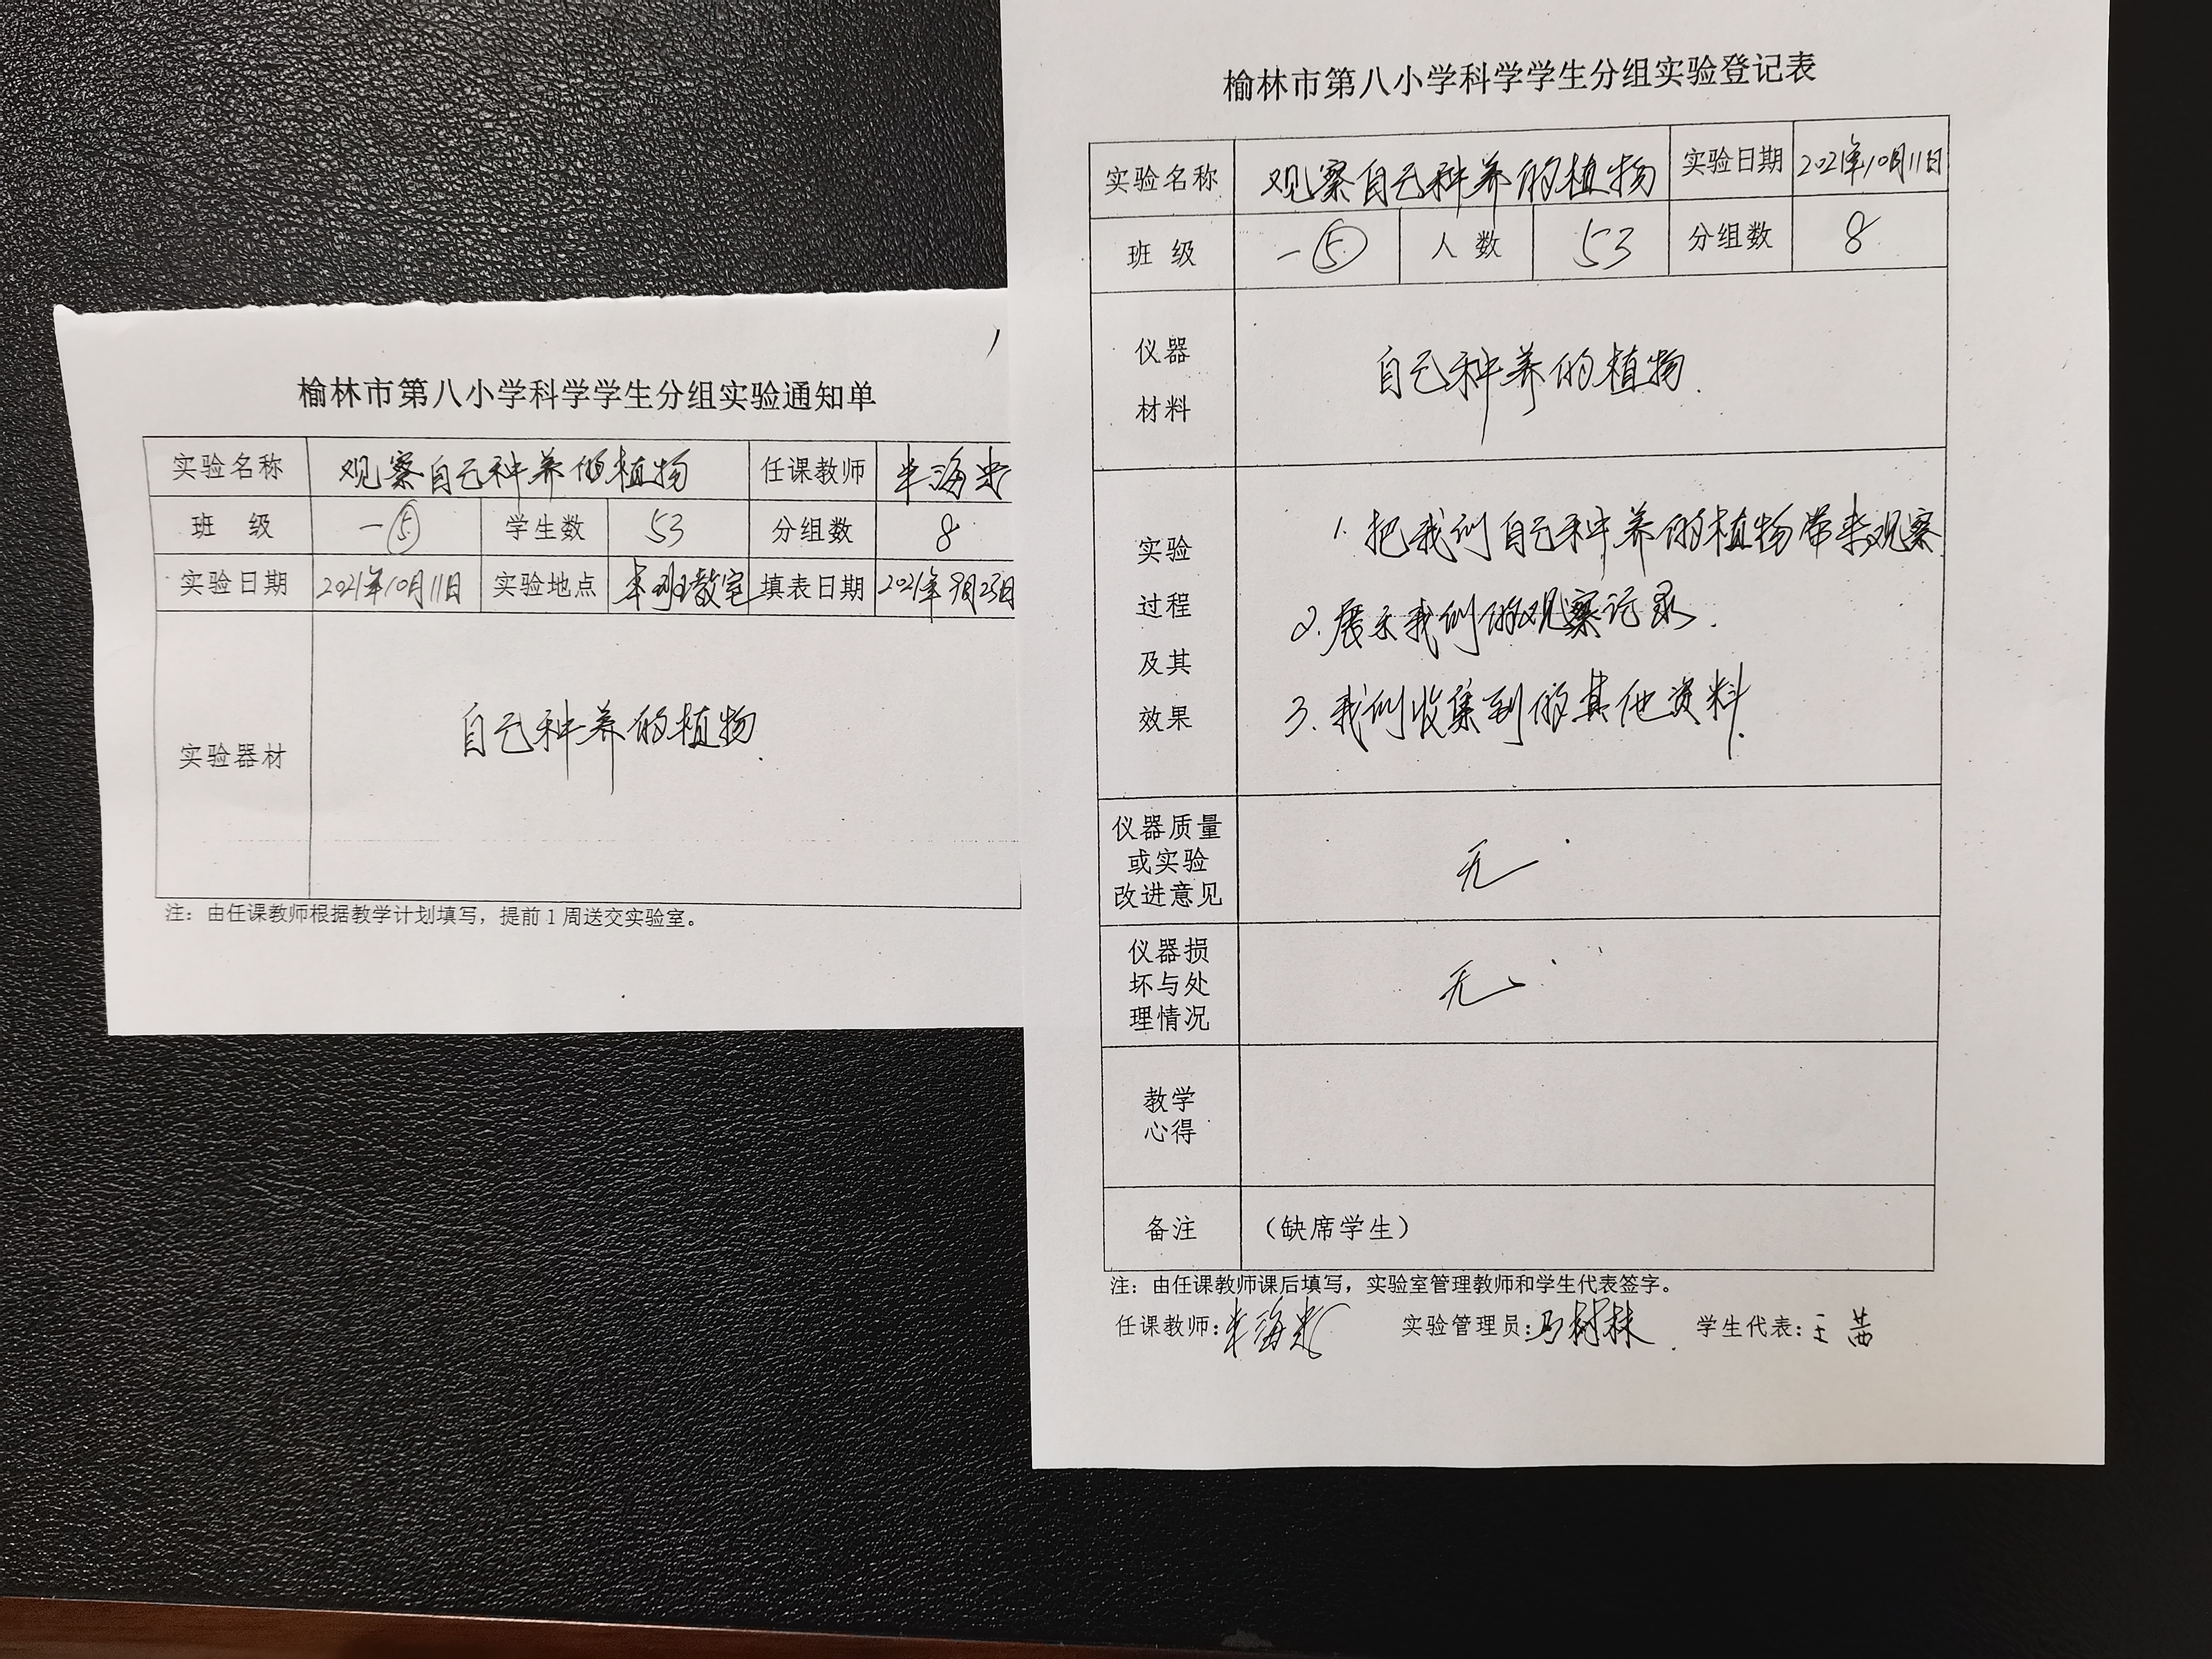 榆林市第八小学科学学生分组实验通知单
实验名称 观察自己种养的植物 任课教师
班 级 一⑤ 学生数 53 分组数 8
实验日期 2021年10月11日 实验地点 本班教室 填表日期 2021年9月23日
实验器材 自己种养的植物.
注：由任课教师根据教学计划填写，提前1周送交实验室。
榆林市第八小学科学学生分组实验登记表
实验名称 观察自己种养的植物 实验日期 2021年10月11日
班 级 一⑤ 人 数 53 分组数 8
仪器
材料
自己种养的植物.
实验
过程
及其
效果
1.把我们自己种养的植物带来观察
2.展示我们的观察记录.
3.我们收集到的其他资料.
仪器质量
或实验
改进意见
无
仪器损
坏与处
理情况
无
教学
心得
备注 （缺席学生）
注：由任课教师课后填写，实验室管理教师和学生代表签字。
任课教师: 实验管理员:马树林 学生代表:王茜